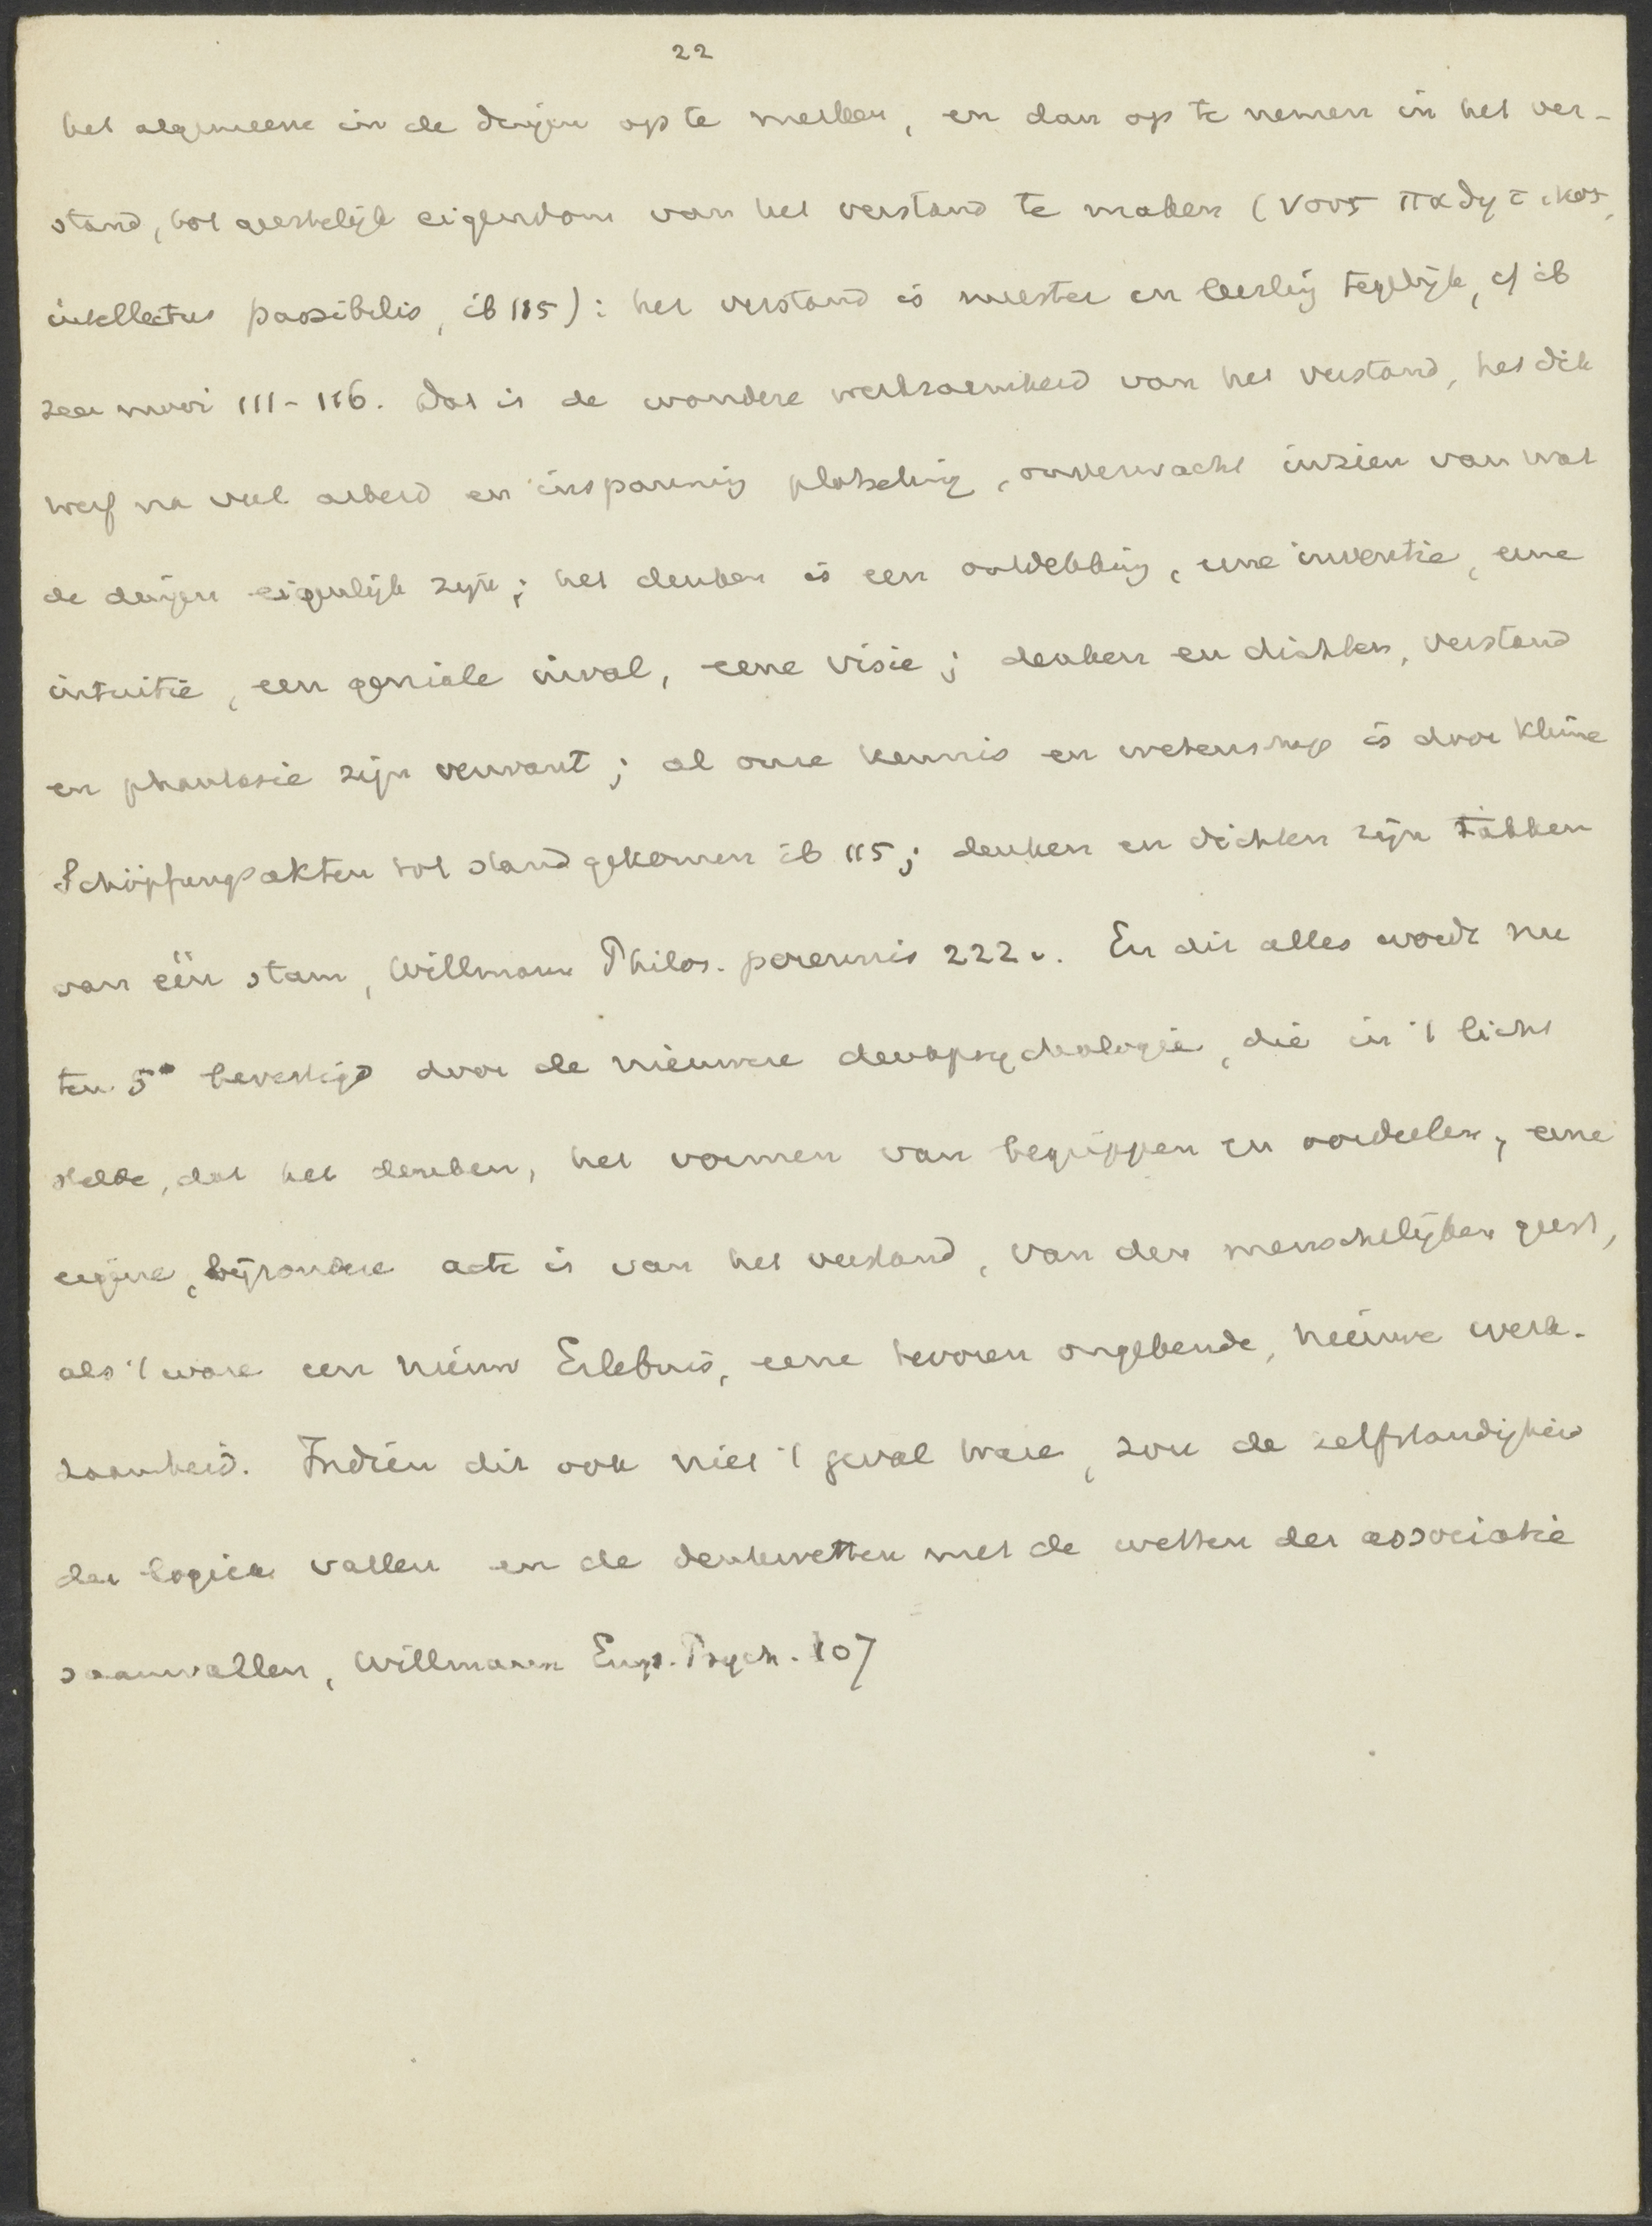 22
het algemeene in de dingen op te merken, en dan op te nemen in het ver-
stand, tot geestelijk eigendom van het verstand te maken (νους παθητικος,
intellectus passibilis, ib 115): het verstand is meester en leerling tegelijk, cf ib
zeer mooi 111-116. Dat is de wondere werkzaamheid van het verstand, het dik
werf na veel arbeid en inspanning plotseling, onverwacht inzien van wat
de dingen eigenlijk zijn; het denken is een ontdekking, eene inventie, eene
intuitie, een geniale inval, eene visie; denken en dichten, verstand
en phantasie zijn verwant; al onze kennis en wetenschap is door kleine
Schöpfungsakten tot stand gekomen ib 115; denken en dichten zijn takken
van één stam, Willmann Philos. perennis 222v. En dit alles wordt nu
ten 5e bevestigd door de nieuwere denkpsychologie, die in 't licht
stelde, dat het denken, het vormen van begrippen en oordeelen, eene
eigene, bijzondere acte is van het verstand, van den menschelijken geest,
als 't ware een nieuw Erlebnis, eene tevoren ongekende, nieuwe werk-
zaamheid. Indien dit ook niet 't geval ware, zou de zelfstandigheid
der logica vallen en de denkwetten met de wetten der associatie
saamvallen, Willmann Emp. Psych. 107